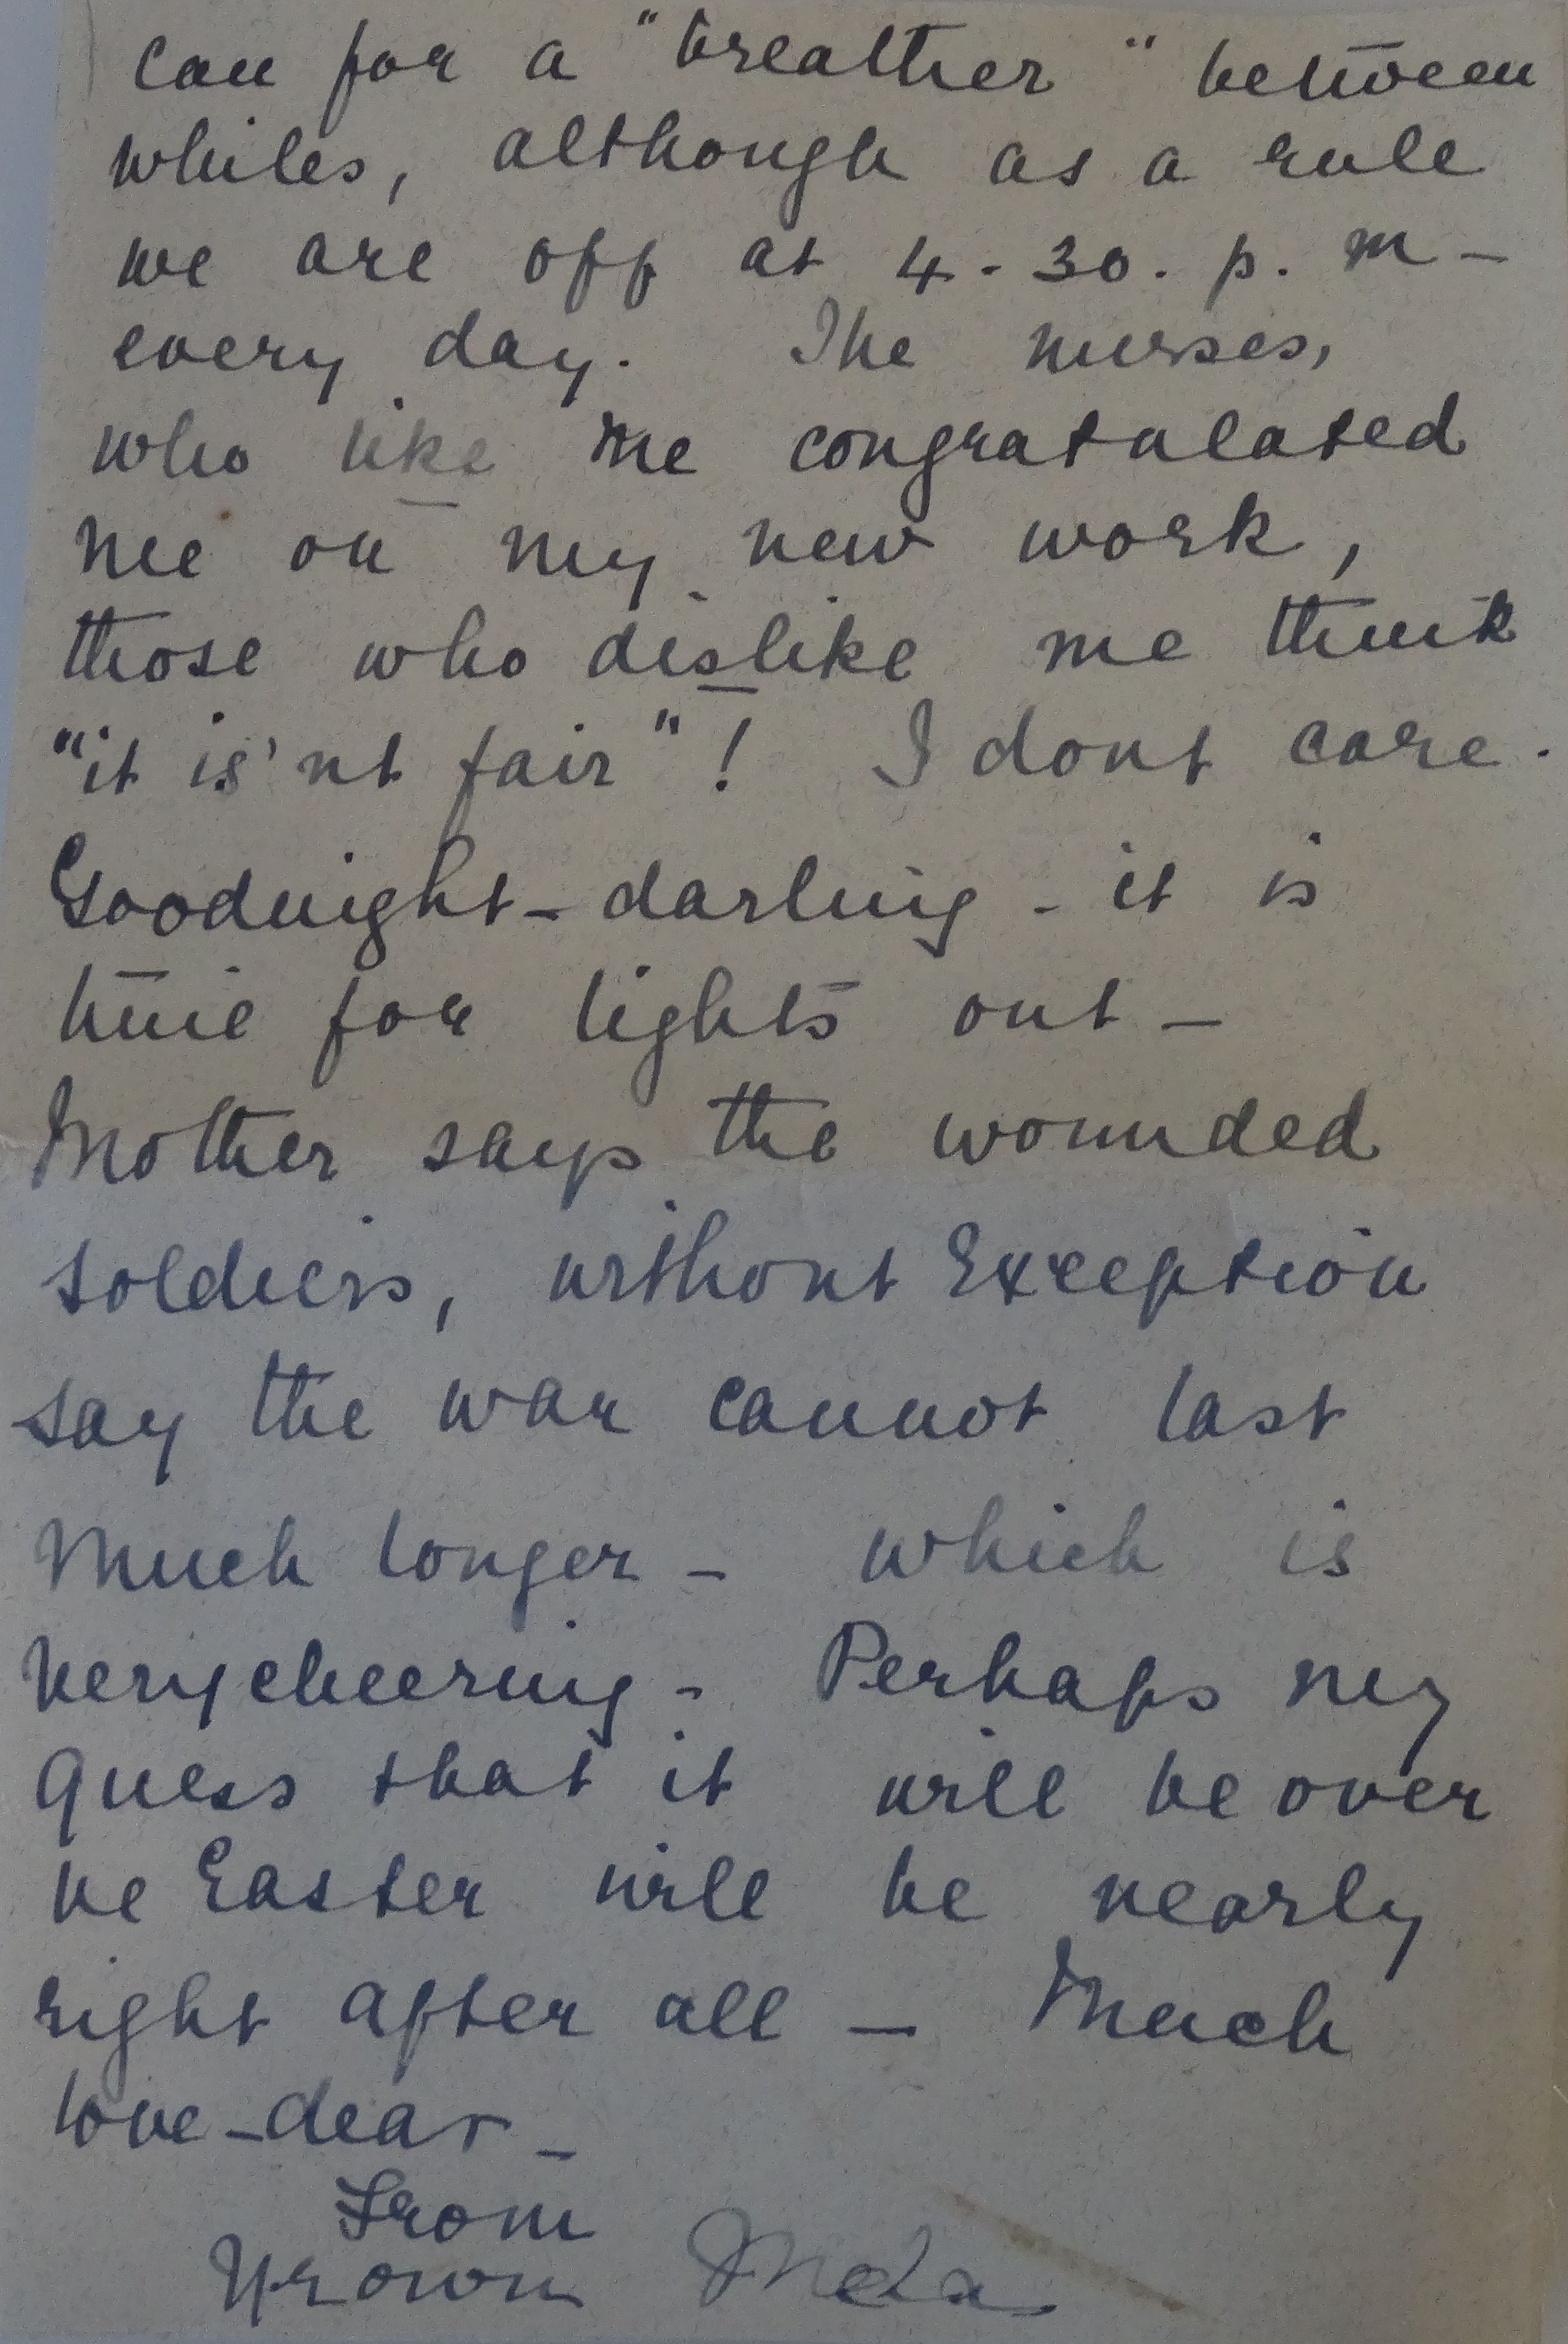 can for a "breather" between
whiles, although as a rule
we are off at 4-30. p. m -
every day. The nurses,
who like me congratulated
me on my new work,
those who dislike me think
"it is'nt fair"! I dont care.
Goodnight - darling - it is
time for lights out -
Mother says the wounded
soldiers, without Exception
say the war cannot last
Much longer - which is
very cheering - Perhaps my
guess that it will be over
be Easter will be nearly
right after all - Much
love - dear -
From
Yr own